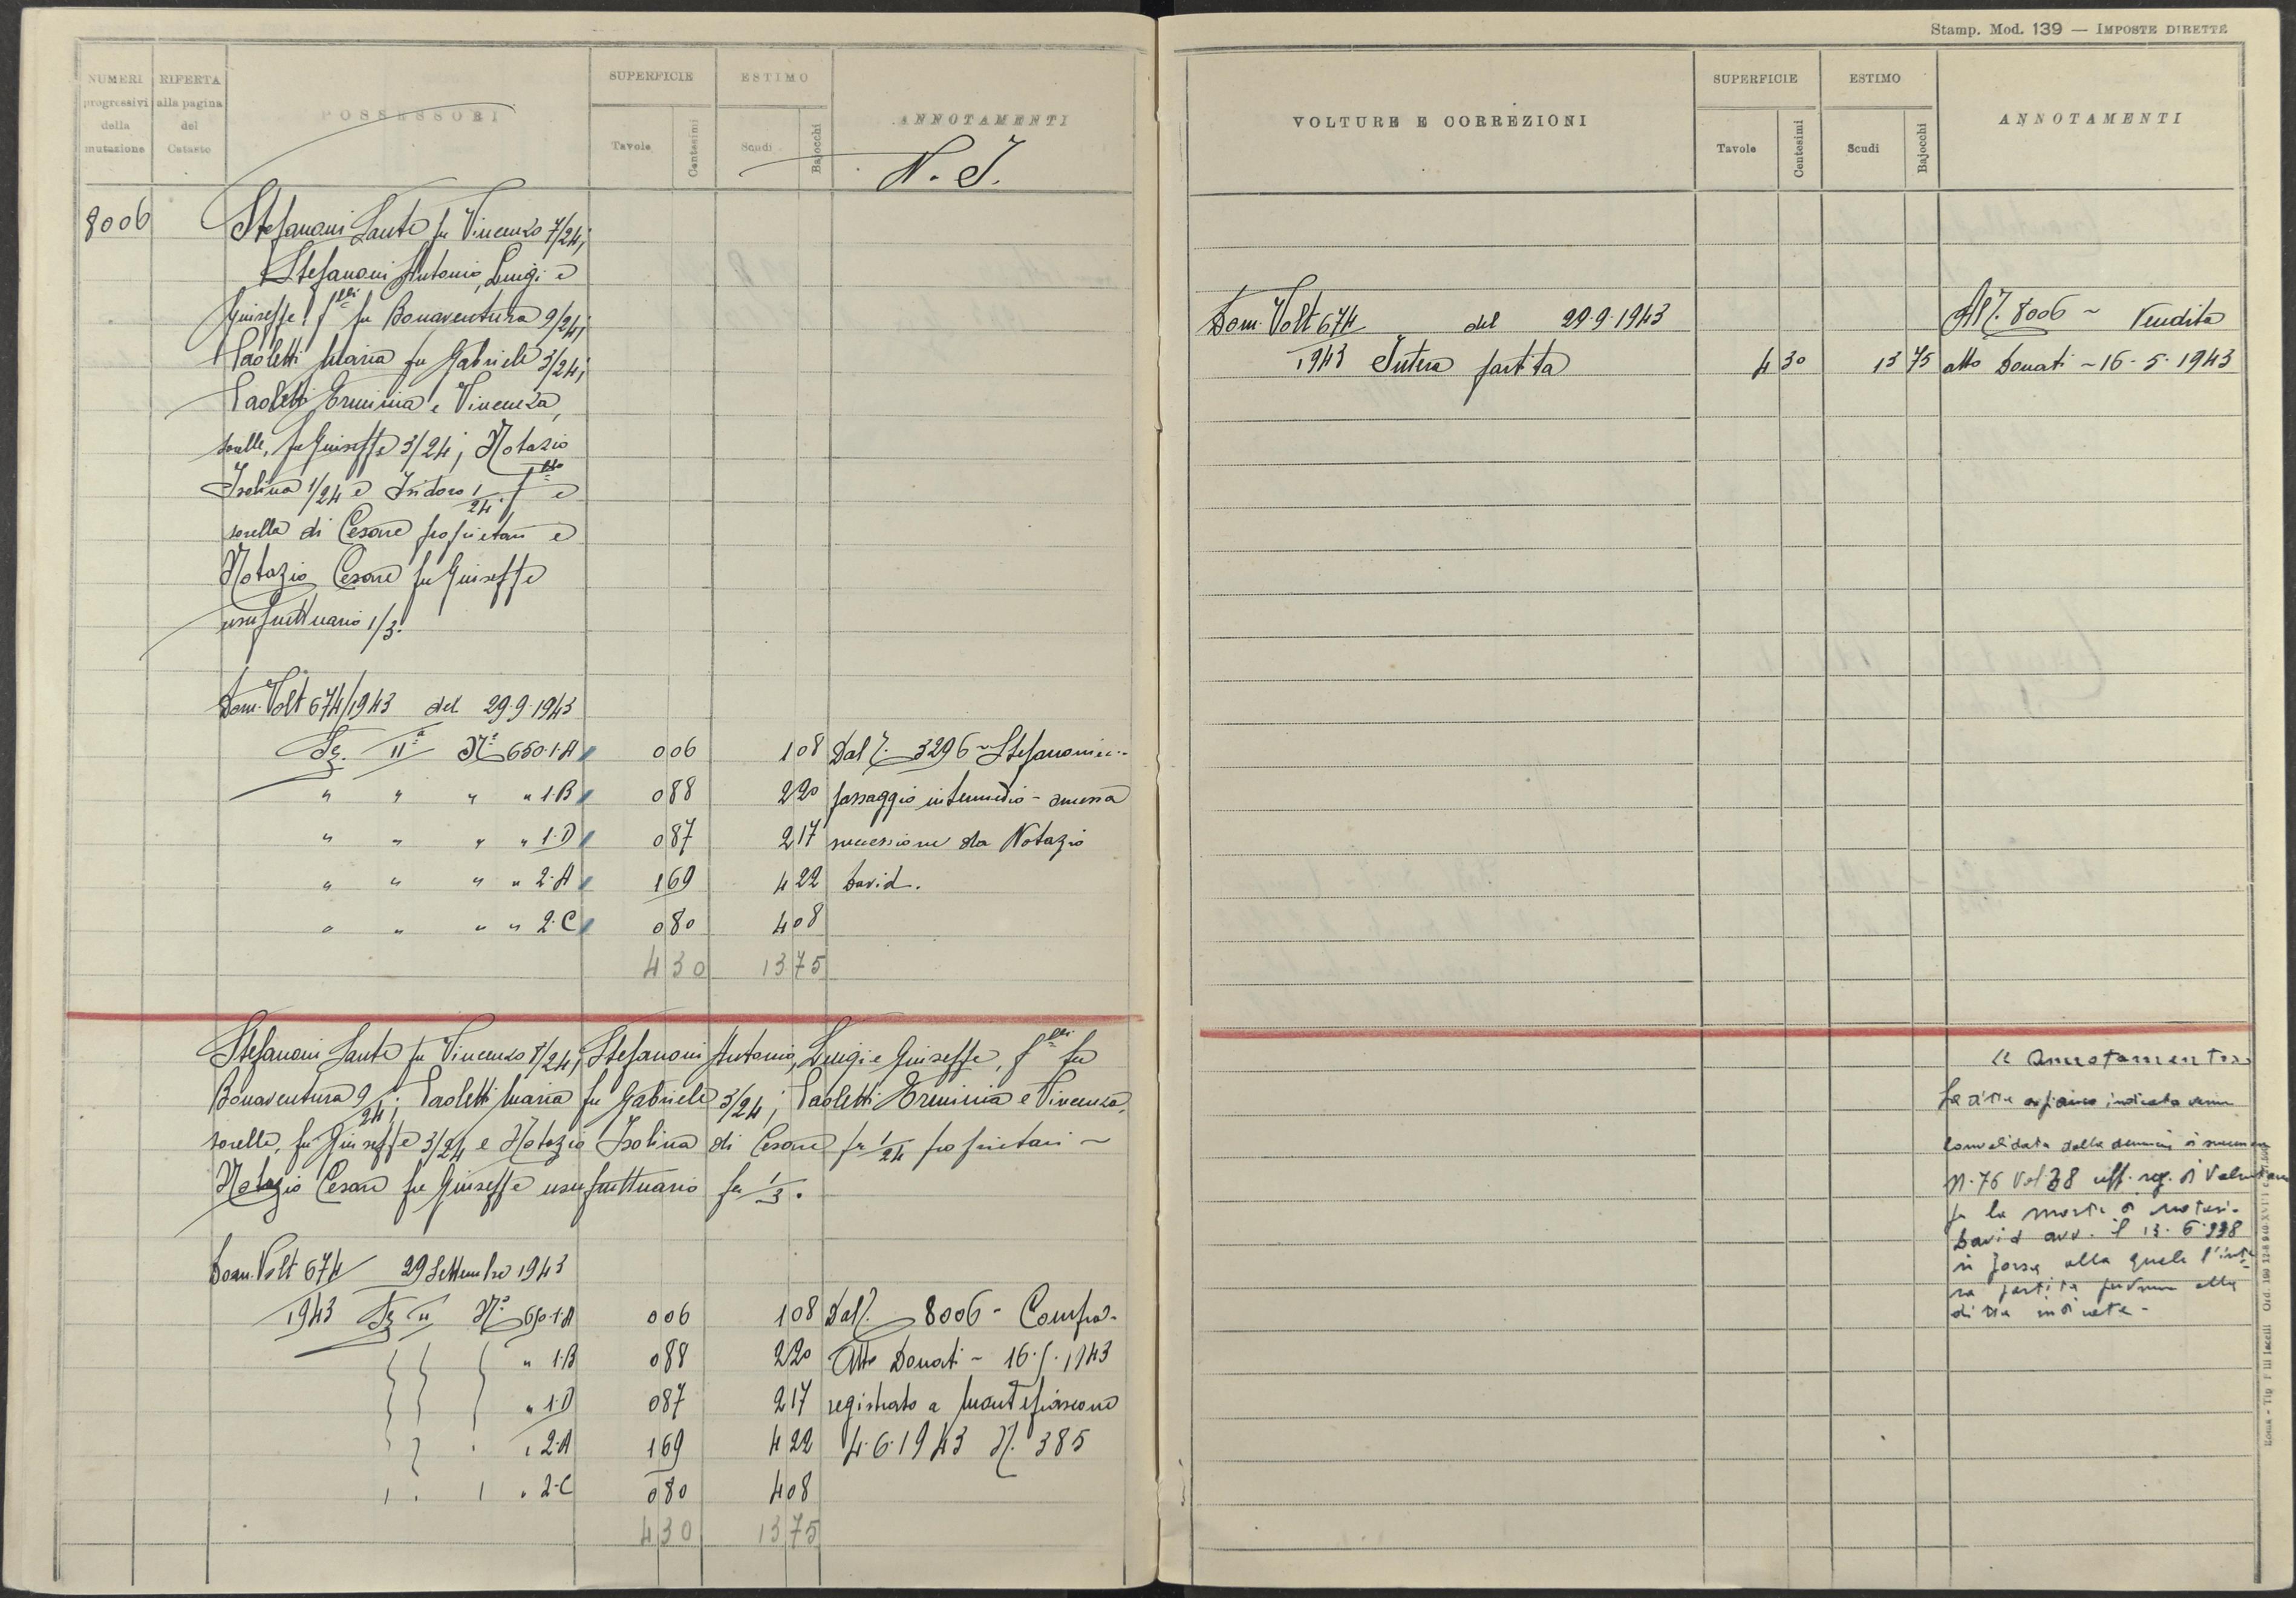 NUMERI progressivi della mutazione
RIFERTA alla pagina del Catasto
POSSESSORI
SUPERFICIE
Tavole
Centesimi
ESTIMO
Scudi
Bajocchi
ANNOTAMENTI
N. I.
8006
Stefanoni Sante fu Vincenzo 7/24;
Stefanoni Antonio, Luigi e
Giuseppe, f.lli fu Bonaventura 9/24;
Paoletti Maria fu Gabriele 3/24;
Paoletti Erminia e Vincenza,
sorelle, fu Giuseppe 3/24; Notazio
Isolina 1/24 e Isidoro 1/24 f.llo e
sorella di Cesare proprietari e
Notazio Cesare fu Giuseppe
usufruttuario 1/3.
Dom. Volt 674/1943 del 29.9.1943
Sz. IIª Nº 650.1.A 0 06 1 08 Dal N. 3296 ~ Stefanoni
" " " " 1.B 0 88 2 20 passaggio intermedio - omessa
" " " " 1.D 0 87 2 17 successione da Notazio
" " " " 2.A 1 69 4 22 David.
" " " " 2.C 0 80 4 08
4 30 13 75
Stefanoni Sante fu Vincenzo 7/24; Stefanoni Antonio, Luigi e Giuseppe, f.lli fu
Bonaventura 9/24; Paoletti Maria fu Gabriele 3/24; Paoletti Erminia e Vincenza,
sorelle, fu Giuseppe 3/24 e Notazio Isolina di Cesare per 1/24 proprietari ~
Notazio Cesare fu Giuseppe usufruttuario per 1/3.
Dom. Volt 674 29 Settembre 1943
1943 Sz II Nº 650.1.A 0 06 1 08 Dal N. 8006 - Compra-
" 1.B 0 88 2 20 Atto Donati ~ 16.5.1943
" 1.D 0 87 2 17 registrato a Montefiascone
" 2.A 1 69 4 22 4.6.1943 N. 385
" 2.C 0 80 4 08
4 30 13 75
Stamp. Mod. 139 — IMPOSTE DIRETTE
VOLTURE E CORREZIONI
SUPERFICIE
Tavole
Centesimi
ESTIMO
Scudi
Bajocchi
ANNOTAMENTI
Dom. Volt 674 del 29.9.1943 Al N. 8006 ~ Vendita
1943 Intera partita 4 30 13 75 atto Donati ~ 16.5.1943
Annotamento
La ditta a fianco indicata venne
convalidata dalla denuncia di
N. 76 Vol 38 uff. reg. di
per la morte di
David avv. il 13.6.938
in forza alla quale l'inte-
ra partita pervenne alla
ditta indicata -